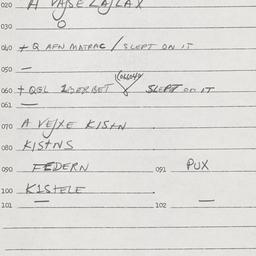 020 A VAJSE LAJLAX
030
040 + Q AFN MATRAC / SLEPT ON IT
050 —
060 + QGL SLEPT ON IT
061 —
070 A VEJXE KISTN
080 KISTNS
090 FEDERN 091 PUX
100 KISTELE
101 — 102 —